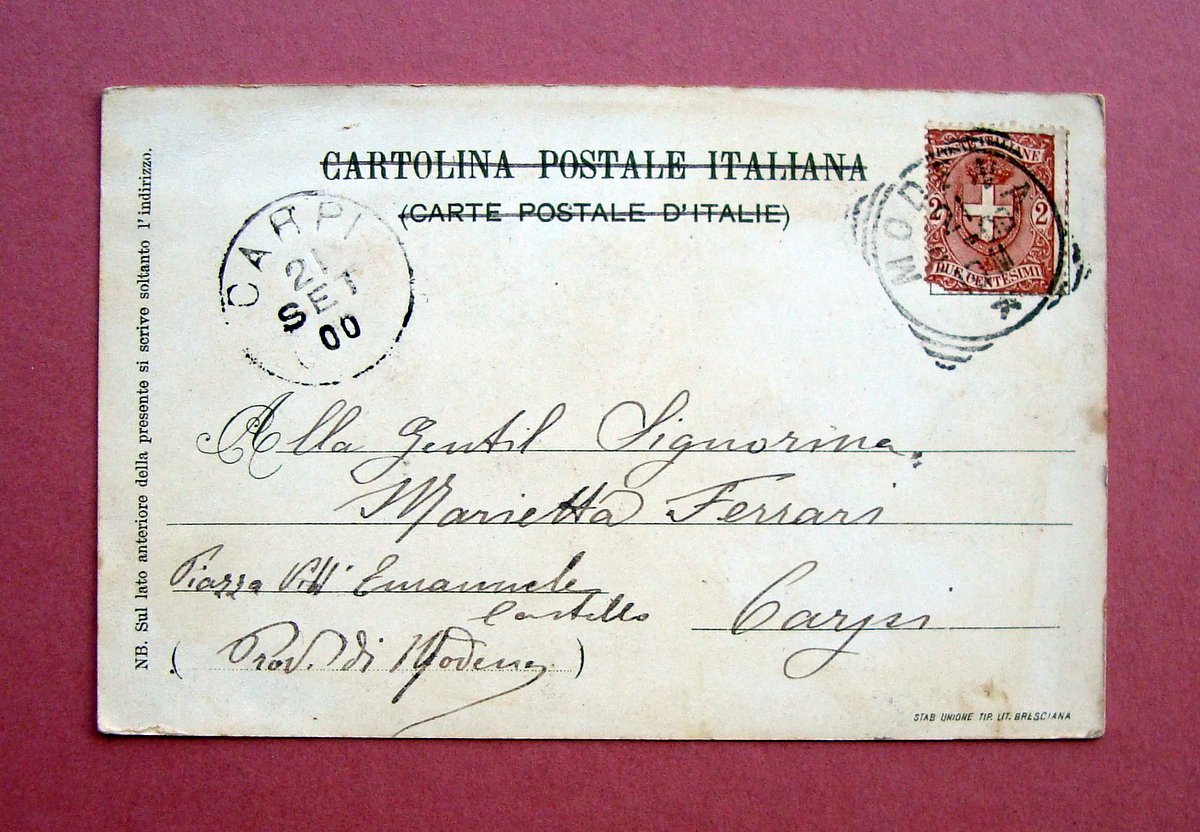 CARTOLINA POSTALE ITALIANA
(CARTE POSTALE D'ITALIE)
POSTE ITALIANE
2 2
DUE CENTESIMI
MODENA
CARPI
2 SET 00
NB. Sul lato anteriore della presente si scrive soltanto l'indirizzo.
Alla Gentil Signorina
Marietta Ferrari
Piazza Vitt Emanuele
Castello
Carpi
(Prov. di Modena)
STAB UNIONE TIP. LIT. BRESCIANA